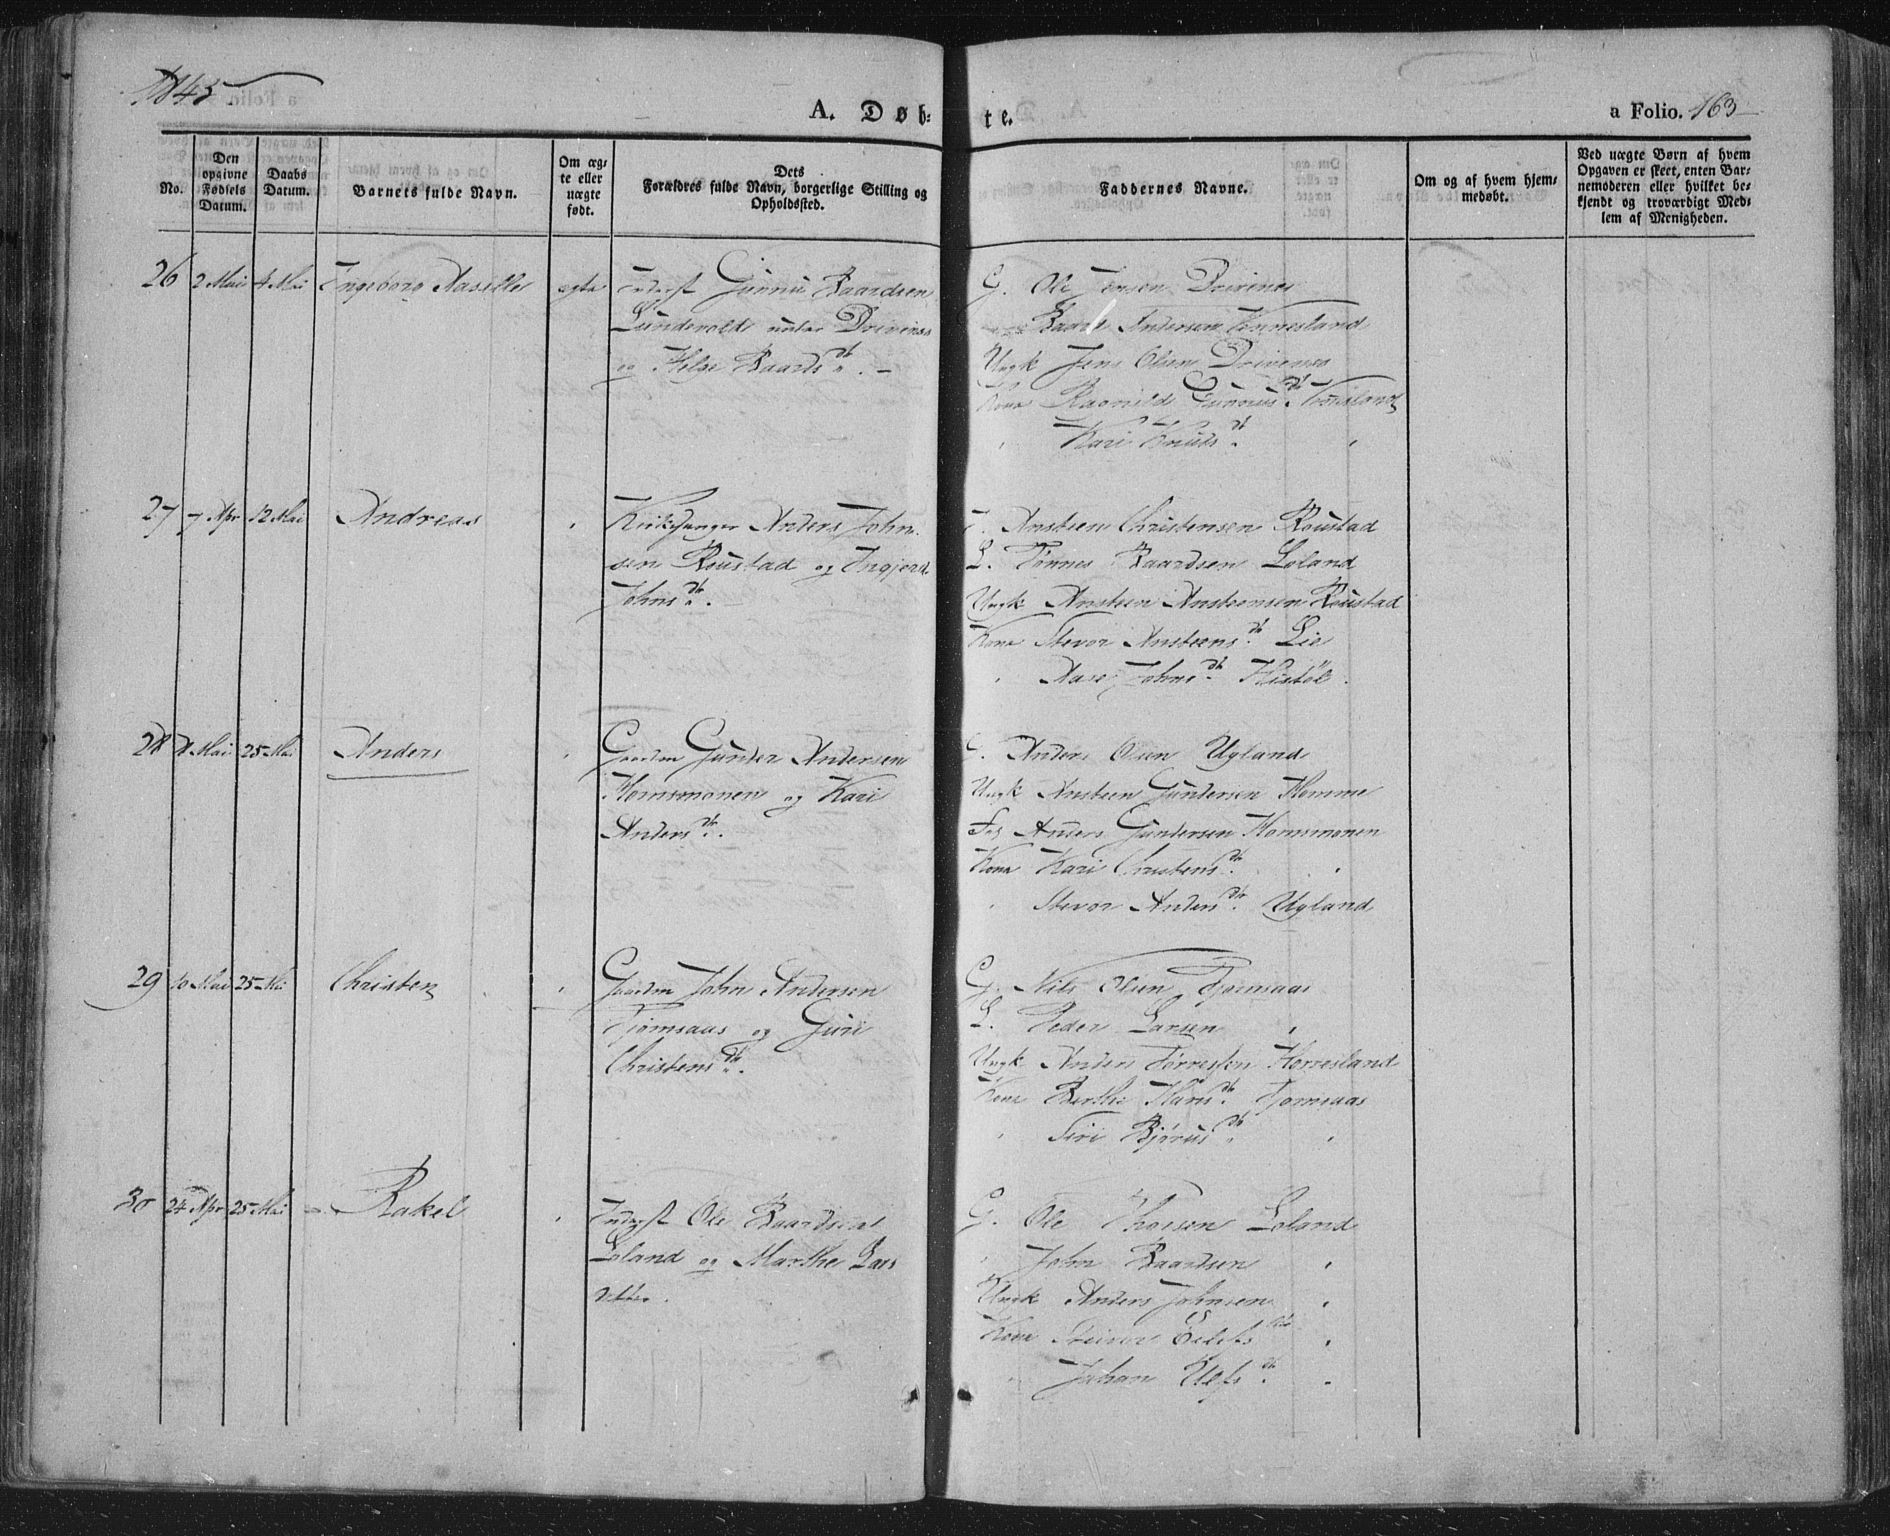 1845
A. Døb-
te.
a Folio. 163
No.
Den opgivne Fødsels Datum.
Daabs Datum.
Barnets fulde Navn.
Om ægte eller uægte født.
Dets Forældres fulde Navn, borgerlige Stilling og Opholdssted.
Faddernes Navne.
Om og af hvem hjemmedøbt.
Ved uægte Børn af hvem Opgaven er skeet, enten Barnemoderen eller hvilket bekjendt og troværdigt Medlem af Menigheden.
26 2 Mai 4 Mai Ingeborg Aasille ægte
Inderst Gunnu Baardsen
Lundevold under Drivenes
og Helge Baards dr. –
G. Ole Jensen Drivenes
Baard Andersen Tonnesland
Ungk Jens Olsen Drivenes
Kone Ragnild Gunnus dr.
" Kari Knuds dr. "
27 7 Apr 12 Mai Andreas "
Kirkesanger Anders John-
sen Roustad og Ingjerd
Johns dr. –
Ansteen Christensen Roustad
L. Tønnes Baardsen Løland
Ungk Ansteen Ansteensen Roustad
Kone Stevor Ansteens dr. Lie
" Aase Johns dr.
28 8 Mai 25 Mai Anders "
Gaardm Gunder Andersen
Homsmonen og Kari
Anders dr.
G. Anders Olsen Ugland
Ungk Ansteen Gundersen Homme
Anders Gundersen Homsmonen
Kone Kari Christens dr. "
" Stevor Anders dr. Ugland
29 10 Mai 25 Mai Christen "
Gaardm John Andersen
Tjomsaas og Guri
Christens dr.
G. Nils Olsen Tjomsaas
L. Peder Larsen "
Ungk Anders Tørresen Horrisland
Kone Berthe Hans dr. Tjomsaas
" Siri Bjørns dr. "
30 24 Apr 25 Mai – Rakel "
Inderst Ole Baardsen
Løland og Marthe Lars
datter.
G. Ole Thorsen Løland
" John Baardsen "
Ungk Anders Johnsen "
Kone Eilefs dr. "
" Johan dr. "